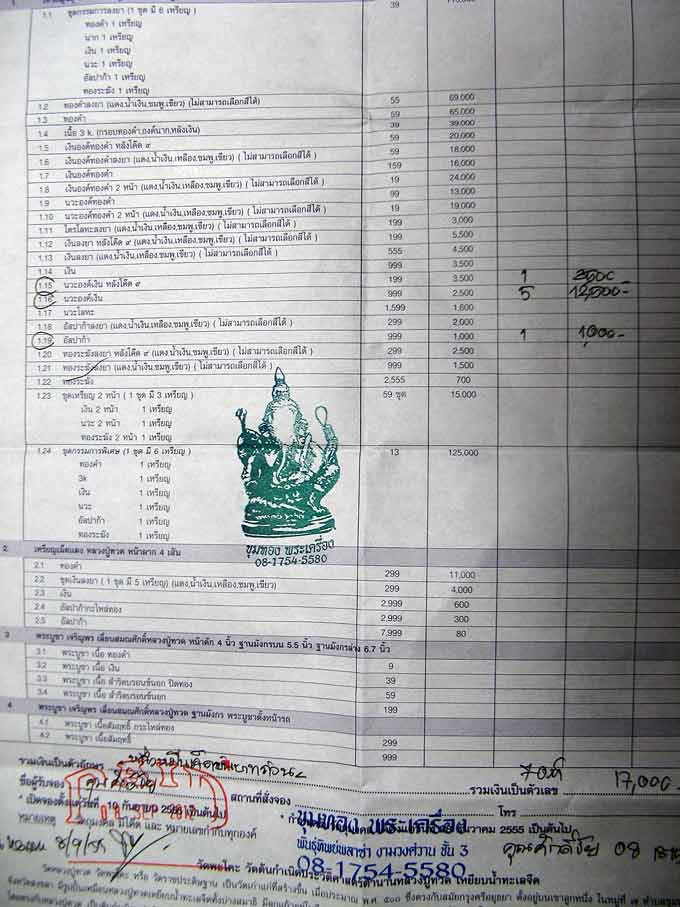 1.1 ชุดกรรมการลงยา (1 ชุด มี 6 เหรียญ) 39
ทองคำ 1 เหรียญ
นาก 1 เหรียญ
เงิน 1 เหรียญ
นวะ 1 เหรียญ
อัลปาก้า 1 เหรียญ
ทองระฆัง 1 เหรียญ
1.2 ทองคำลงยา (แดง,น้ำเงิน,ชมพู,เขียว) (ไม่สามารถเลือกสีได้) 55 69,000
1.3 ทองคำ 59 65,000
1.4 เนื้อ 3 k. (กรอบทองคำ,องค์นาก,หลังเงิน) 39 39,000
1.5 เงินองค์ทองคำ หลังโค๊ด ๙ 59 20,000
1.6 เงินองค์ทองคำลงยา (แดง,น้ำเงิน,เหลือง,ชมพู,เขียว) ( ไม่สามารถเลือกสีได้ ) 59 18,000
1.7 เงินองค์ทองคำ 159 16,000
1.8 เงินองค์ทองคำ 2 หน้า (แดง,น้ำเงิน,เหลือง,ชมพู,เขียว) ( ไม่สามารถเลือกสีได้ ) 19 24,000
1.9 นวะองค์ทองคำ 99 13,000
1.10 นวะองค์ทองคำ 2 หน้า (แดง,น้ำเงิน,เหลือง,ชมพู,เขียว) ( ไม่สามารถเลือกสีได้ ) 19 19,000
1.11 ไตรโลหะลงยา (แดง,น้ำเงิน,เหลือง,ชมพู,เขียว) ( ไม่สามารถเลือกสีได้ ) 199 3,000
1.12 เงินลงยา หลังโค๊ด ๙ (แดง,น้ำเงิน,เหลือง,ชมพู,เขียว) ( ไม่สามารถเลือกสีได้ ) 199 5,500
1.13 เงินลงยา (แดง,น้ำเงิน,เหลือง,ชมพู,เขียว) ( ไม่สามารถเลือกสีได้ ) 555 4,500
1.14 เงิน 999 3,500
1.15 นวะองค์เงิน หลังโค๊ด ๙ 199 3,500 1 3500
1.16 นวะองค์เงิน 999 2,500 5 12,500-
1.17 นวะโลหะ 1,599 1,600
1.18 อัลปาก้าลงยา (แดง,น้ำเงิน,เหลือง,ชมพู,เขียว) ( ไม่สามารถเลือกสีได้ ) 299 2,000
1.19 อัลปาก้า 999 1,000 1 1,000-
1.20 ทองระฆังลงยา หลังโค๊ด ๙ (แดง,น้ำเงิน,เหลือง,ชมพู,เขียว) ( ไม่สามารถเลือกสีได้ ) 299 2,500
1.21 ทองระฆังลงยา (แดง,น้ำเงิน,เหลือง,ชมพู,เขียว) ( ไม่สามารถเลือกสีได้ ) 999 1,500
1.22 ทองระฆัง 2,555 700
1.23 ชุดเหรียญ 2 หน้า ( 1 ชุด มี 3 เหรียญ ) 59 ชุด 15,000
เงิน 2 หน้า 1 เหรียญ
นวะ 2 หน้า 1 เหรียญ
ทองระฆัง 2 หน้า 1 เหรียญ
1.24 ชุดกรรมการพิเศษ (1 ชุด มี 6 เหรียญ ) 13 125,000
ทองคำ 1 เหรียญ
3k 1 เหรียญ
เงิน 1 เหรียญ
นวะ 1 เหรียญ
อัลปาก้า 1 เหรียญ
ทองระฆัง 1 เหรียญ
ขุมทอง พระเครื่อง
08-1754-5580
2. เหรียญเม็ดแตง หลวงปู่ทวด หน้าผาก 4 เส้น
2.1 ทองคำ 299 11,000
2.2 ชุดเงินลงยา ( 1 ชุด มี 5 เหรียญ) (แดง,น้ำเงิน,เหลือง,ชมพู,เขียว) 299 4,000
2.3 เงิน 2,999 600
2.4 อัลปาก้ากะไหล่ทอง 2,999 300
2.5 อัลปาก้า 7,999 80
3 พระบูชา เจริญพร เลื่อนสมณศักดิ์หลวงปู่ทวด หน้าตัก 4 นิ้ว ฐานมังกรบน 5.5 นิ้ว ฐานมังกรล่าง 6.7 นิ้ว
3.1 พระบูชา เนื้อ ทองคำ
3.2 พระบูชา เนื้อ เงิน 9
3.3 พระบูชา เนื้อ สำริดบรอนซ์นอก ปิดทอง 39
3.4 พระบูชา เนื้อ สำริดบรอนซ์นอก 59
4 พระบูชา เจริญพร เลื่อนสมณศักดิ์หลวงปู่ทวด ฐานมังกร พระบูชาตั้งหน้ารถ 199
4.1 พระบูชา เนื้อสัมฤทธิ์ กระไหล่ทอง
4.2 พระบูชา เนื้อสัมฤทธิ์ 299
999
รวมเงินเป็นตัวอักษร รวมเงินเป็นตัวเลข 17,000-
ชื่อผู้รับจอง สถานที่สั่งจอง โทร
• เปิดจองตั้งแต่วันที่ 10 กันยายน เป็นต้นไป ธันวาคม 2555 เป็นต้นไป
หมายเหตุ และ หมายเลขกำกับทุกองค์
ขุมทอง พระเครื่อง
พันธุ์ทิพย์พลาซ่า งามวงศ์วาน ชั้น 3
08-1754-5580
วัดพะโคะ วัดต้นกำเนิดประวัติศาสตร์ตำนานหลวงปู่ทวด เหยียบน้ำทะเลจืด